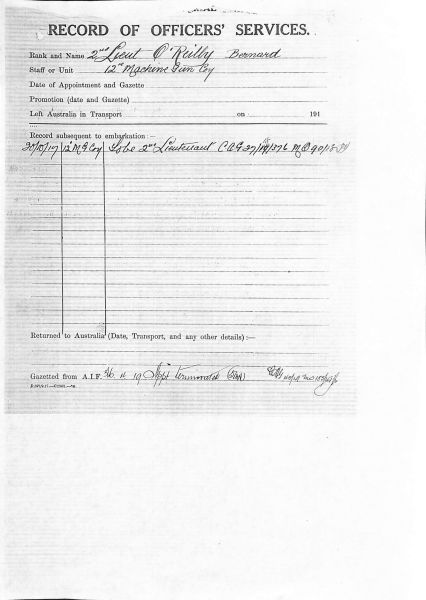 RECORD OF OFFICERS' SERVICES.
Rank and Name 2nd Lieut O'Reilly Bernard
Staff or Unit 12th Machine Gun Coy
Date of Appointment and Gazette
Promotion (date and Gazette)
Left Australia in Transport on 191
Record subsequent to embarkation:—
12th M G Coy To be 2nd Lieutenant
Returned to Australia (Date, Transport, and any other details):—
Gazetted from A.I.F. Appt terminated